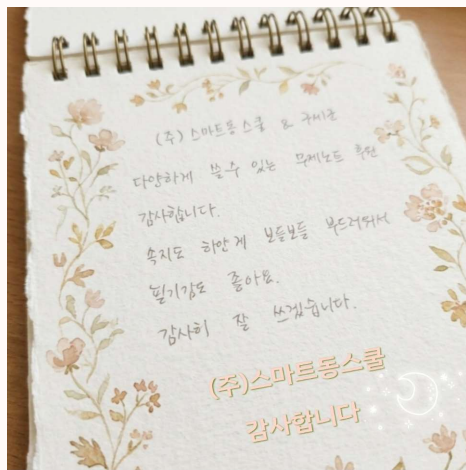 (주) 스마트동스쿨 &
다양하게 쓸수 있는 무제노트 후원
감사합니다.
속지도 하얀게 보들보들 부드러워서
필기감도 좋아요.
감사히 잘 쓰겠습니다.
(주)스마트동스쿨
감사합니다